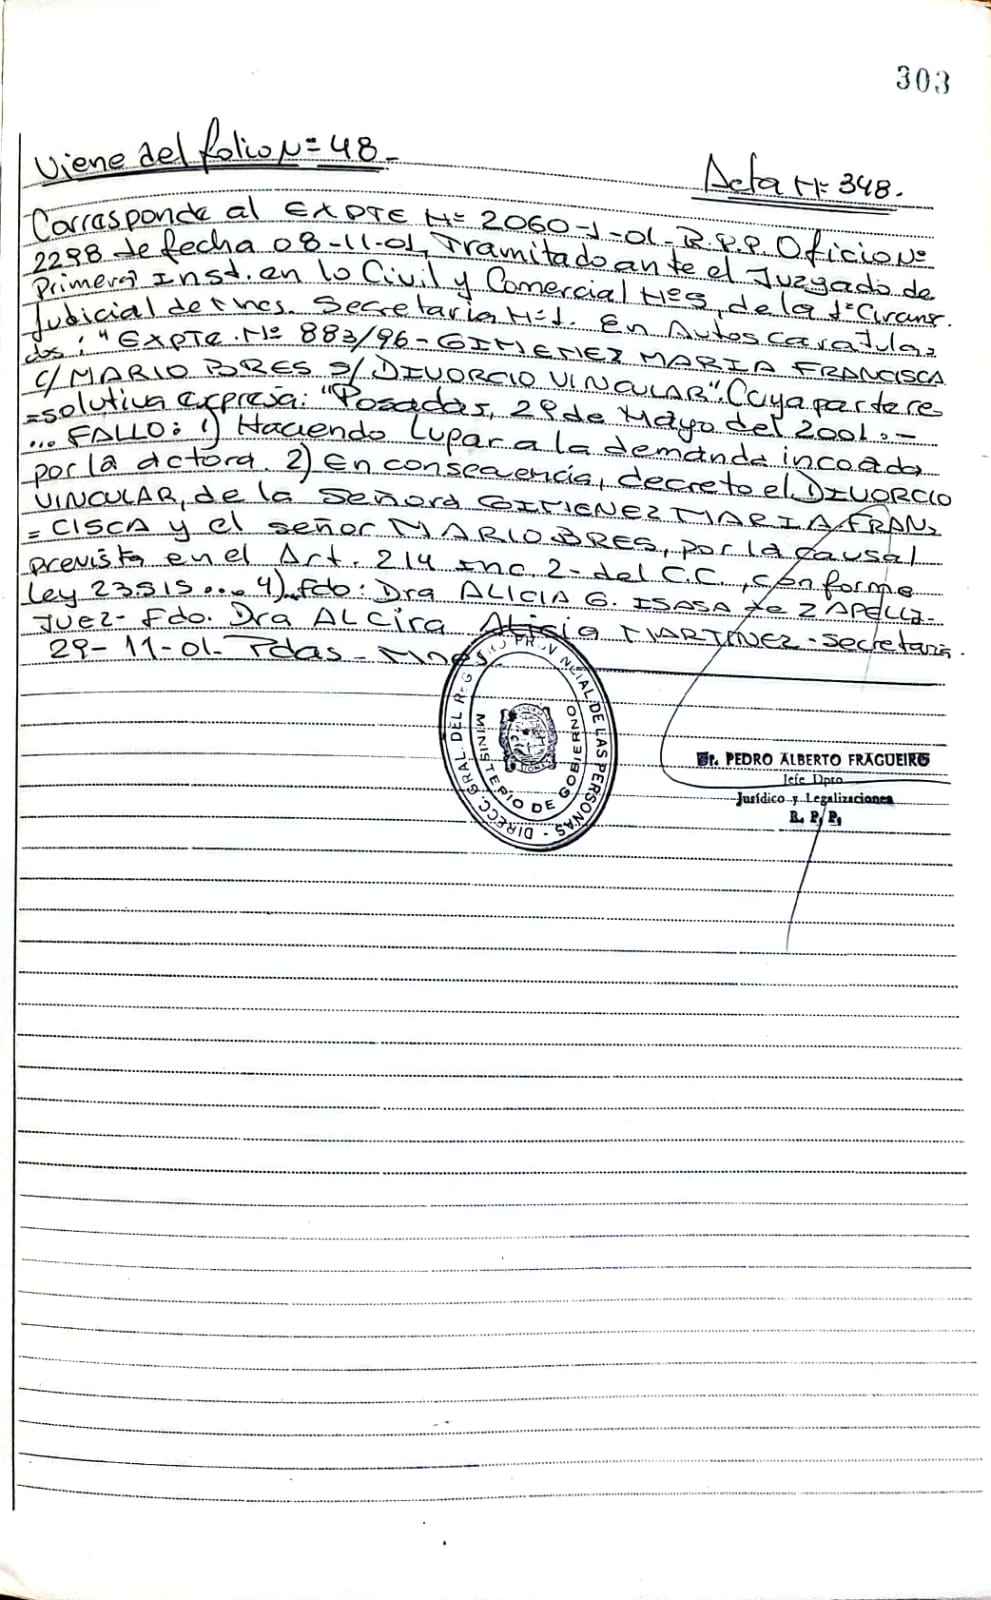 303
Viene del folio Nº 48.-
Acta Nº 348.
Corresponde al EXPTE Nº 2060-J-01- R.P.P. Oficio Nº
2298 de fecha 08-11-01, Tramitado ante el Juzgado de
Primera Inst. en lo Civil y Comercial Nº 5, de la 1º Circuns.
Judicial de Mnes. Secretaria Nº 1. En Autos caratula=
dos: "EXPTE. Nº 883/96-GIMENEZ MARIA FRANCISCA
C/MARIO BRES S/DIVORCIO VINCULAR". Cuya parte re
=solutiva expresa: "Posadas, 29 de Mayo del 2001.-
... FALLO: 1) Haciendo Lugar a la demanda incoada
por la actora. 2) En consecuencia, decreto el DIVORCIO
VINCULAR, de la Señora GIMENEZ MARIA FRAN=
=CISCA y el señor MARIO BRES, por la causal
prevista en el Art. 214 Inc. 2- del C.C., conforme
Ley 23.515... 4) Fdo: Dra ALICIA G. ISASA de ZAPELLI-
Juez- Fdo. Dra ALCIRA Alicia MARTINEZ - secretaria.
29-11-01- Pdas - Mnes
DIRECC. GRAL. DEL REGISTRO PROVINCIAL DE LAS PERSONAS -
MINISTERIO DE GOBIERNO
Dr. PEDRO ALBERTO FRAGUEIRO
Jefe Dpto
Jurídico y Legalizaciones
R. P. P.